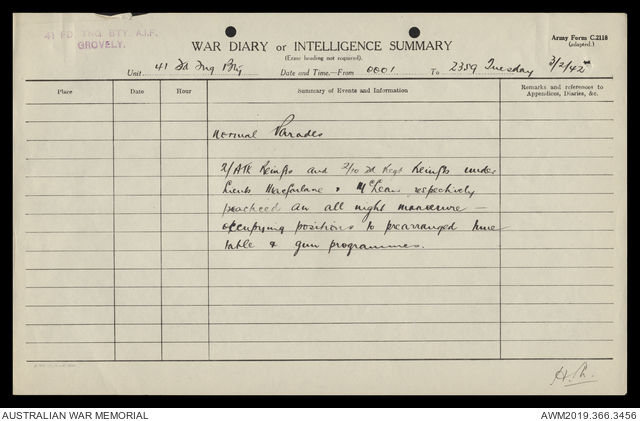 41 FD. TNG. BTY. A.I.F.
GROVELY.
Army Form C.2118
(adapted.)
WAR DIARY or INTELLIGENCE SUMMARY
(Erase heading not required).
Unit 41 Fd Tng Bty Date and Time.—From 0001 To 2359 Tuesday 3/2/42
Place Date Hour Summary of Events and Information Remarks and references to
Appendices, Diaries, &c.
Normal Parades
2/ATK Reinfts and 2/10 Fd Regt Reinfts under
Lieuts Macfarlane & McLean respectively
practiced an all night manouvre —
occupying positions to prearranged time
table & gun programmes.
AUSTRALIAN WAR MEMORIAL AWM2019.366.3456